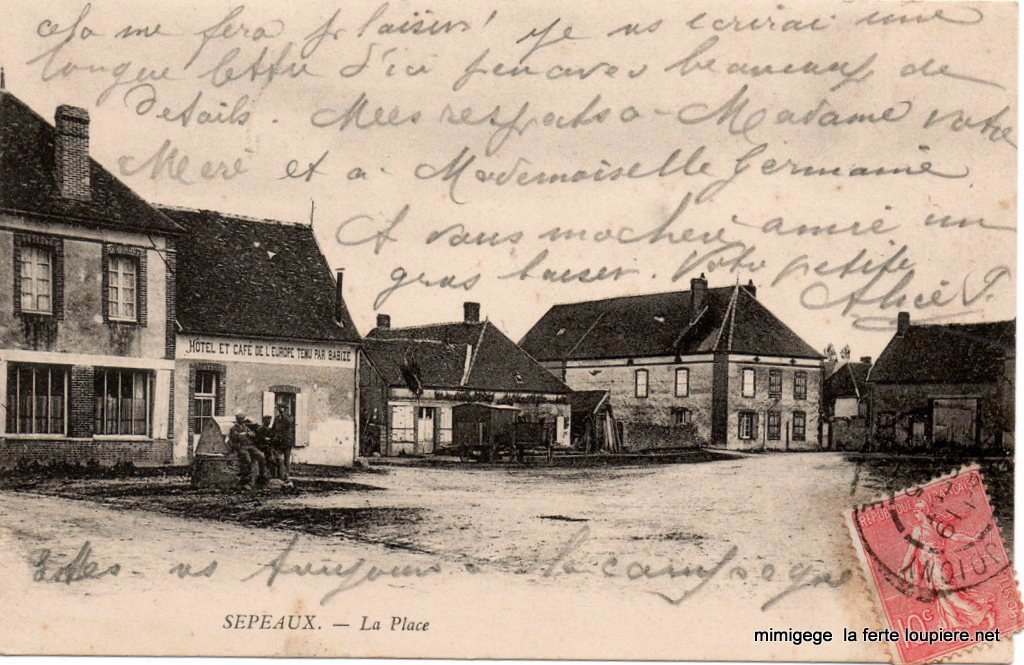 cela me fera plaisir! je vs ecrirai une
longue lettre d'ici peu avec beaucoup de
details. Mes respects a Madame votre
Mere et a Mademoiselle Germaine
A vous ma chere amie un
gros baiser. Votre petite
Alice T.
HÔTEL ET CAFÉ DE L'EUROPE TENU PAR BABIZE
REPUBLIQUE FRANÇAISE
JOIGNY
10c
Etes vs toujours a la campagne
SEPEAUX. — La Place
mimigege la ferte loupiere.net